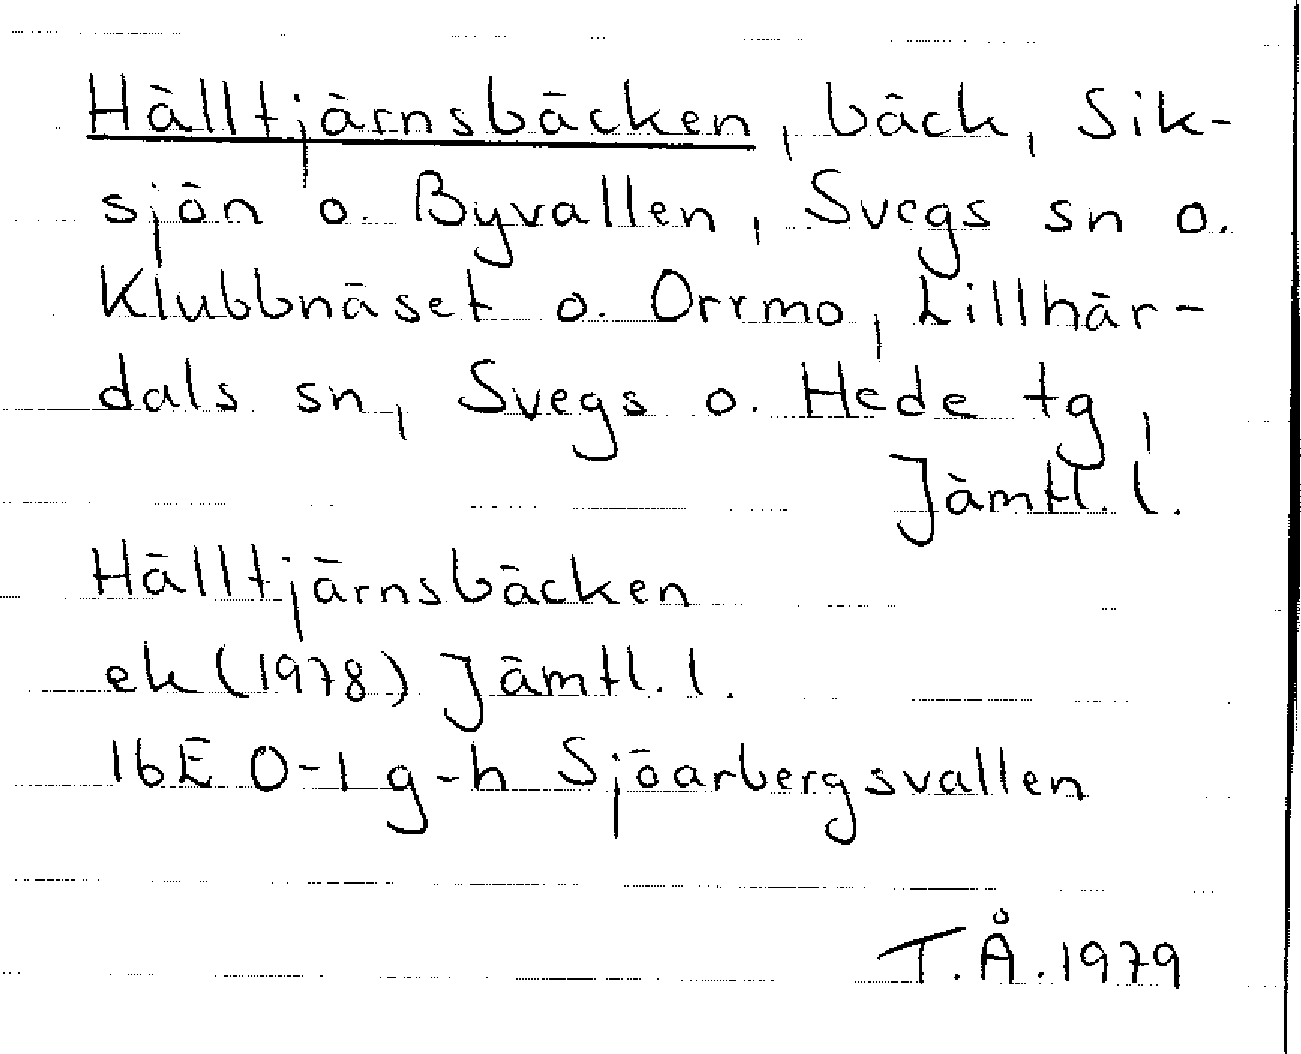 Hälltjärnsbäcken, bäck, Sik-
sjön o. Byvallen, Svegs sn o.
Klubbnäset o. Orrmo, Lillhär-
dals sn, Svegs o. Hede tg,
Jämtl. l.
Hälltjärnsbäcken
ek (1978) Jämtl. l.
16E 0-1 g-h Sjöarbergsvallen
T.Å. 1979